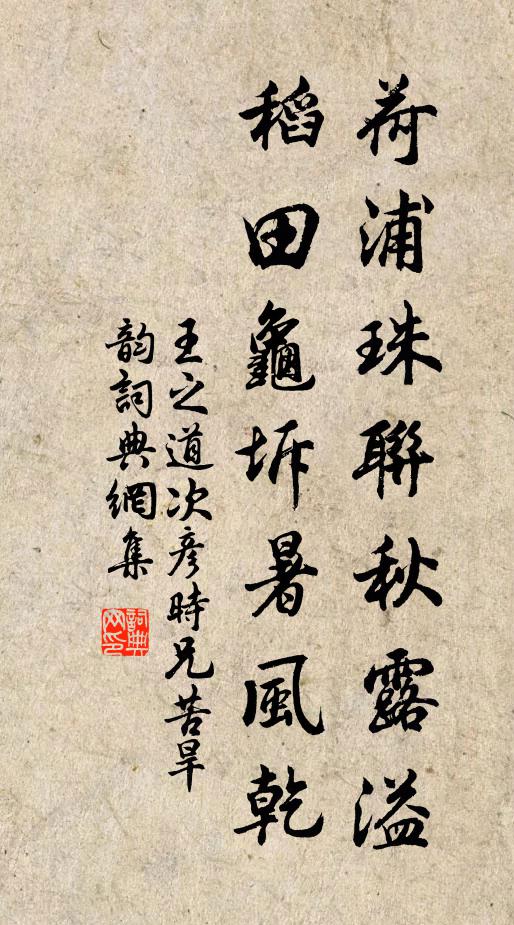 荷浦珠聯秋露溢
稻田龜坼暑風乾
王之道次彦時兄苦旱
韵詞典網集
詞典網印